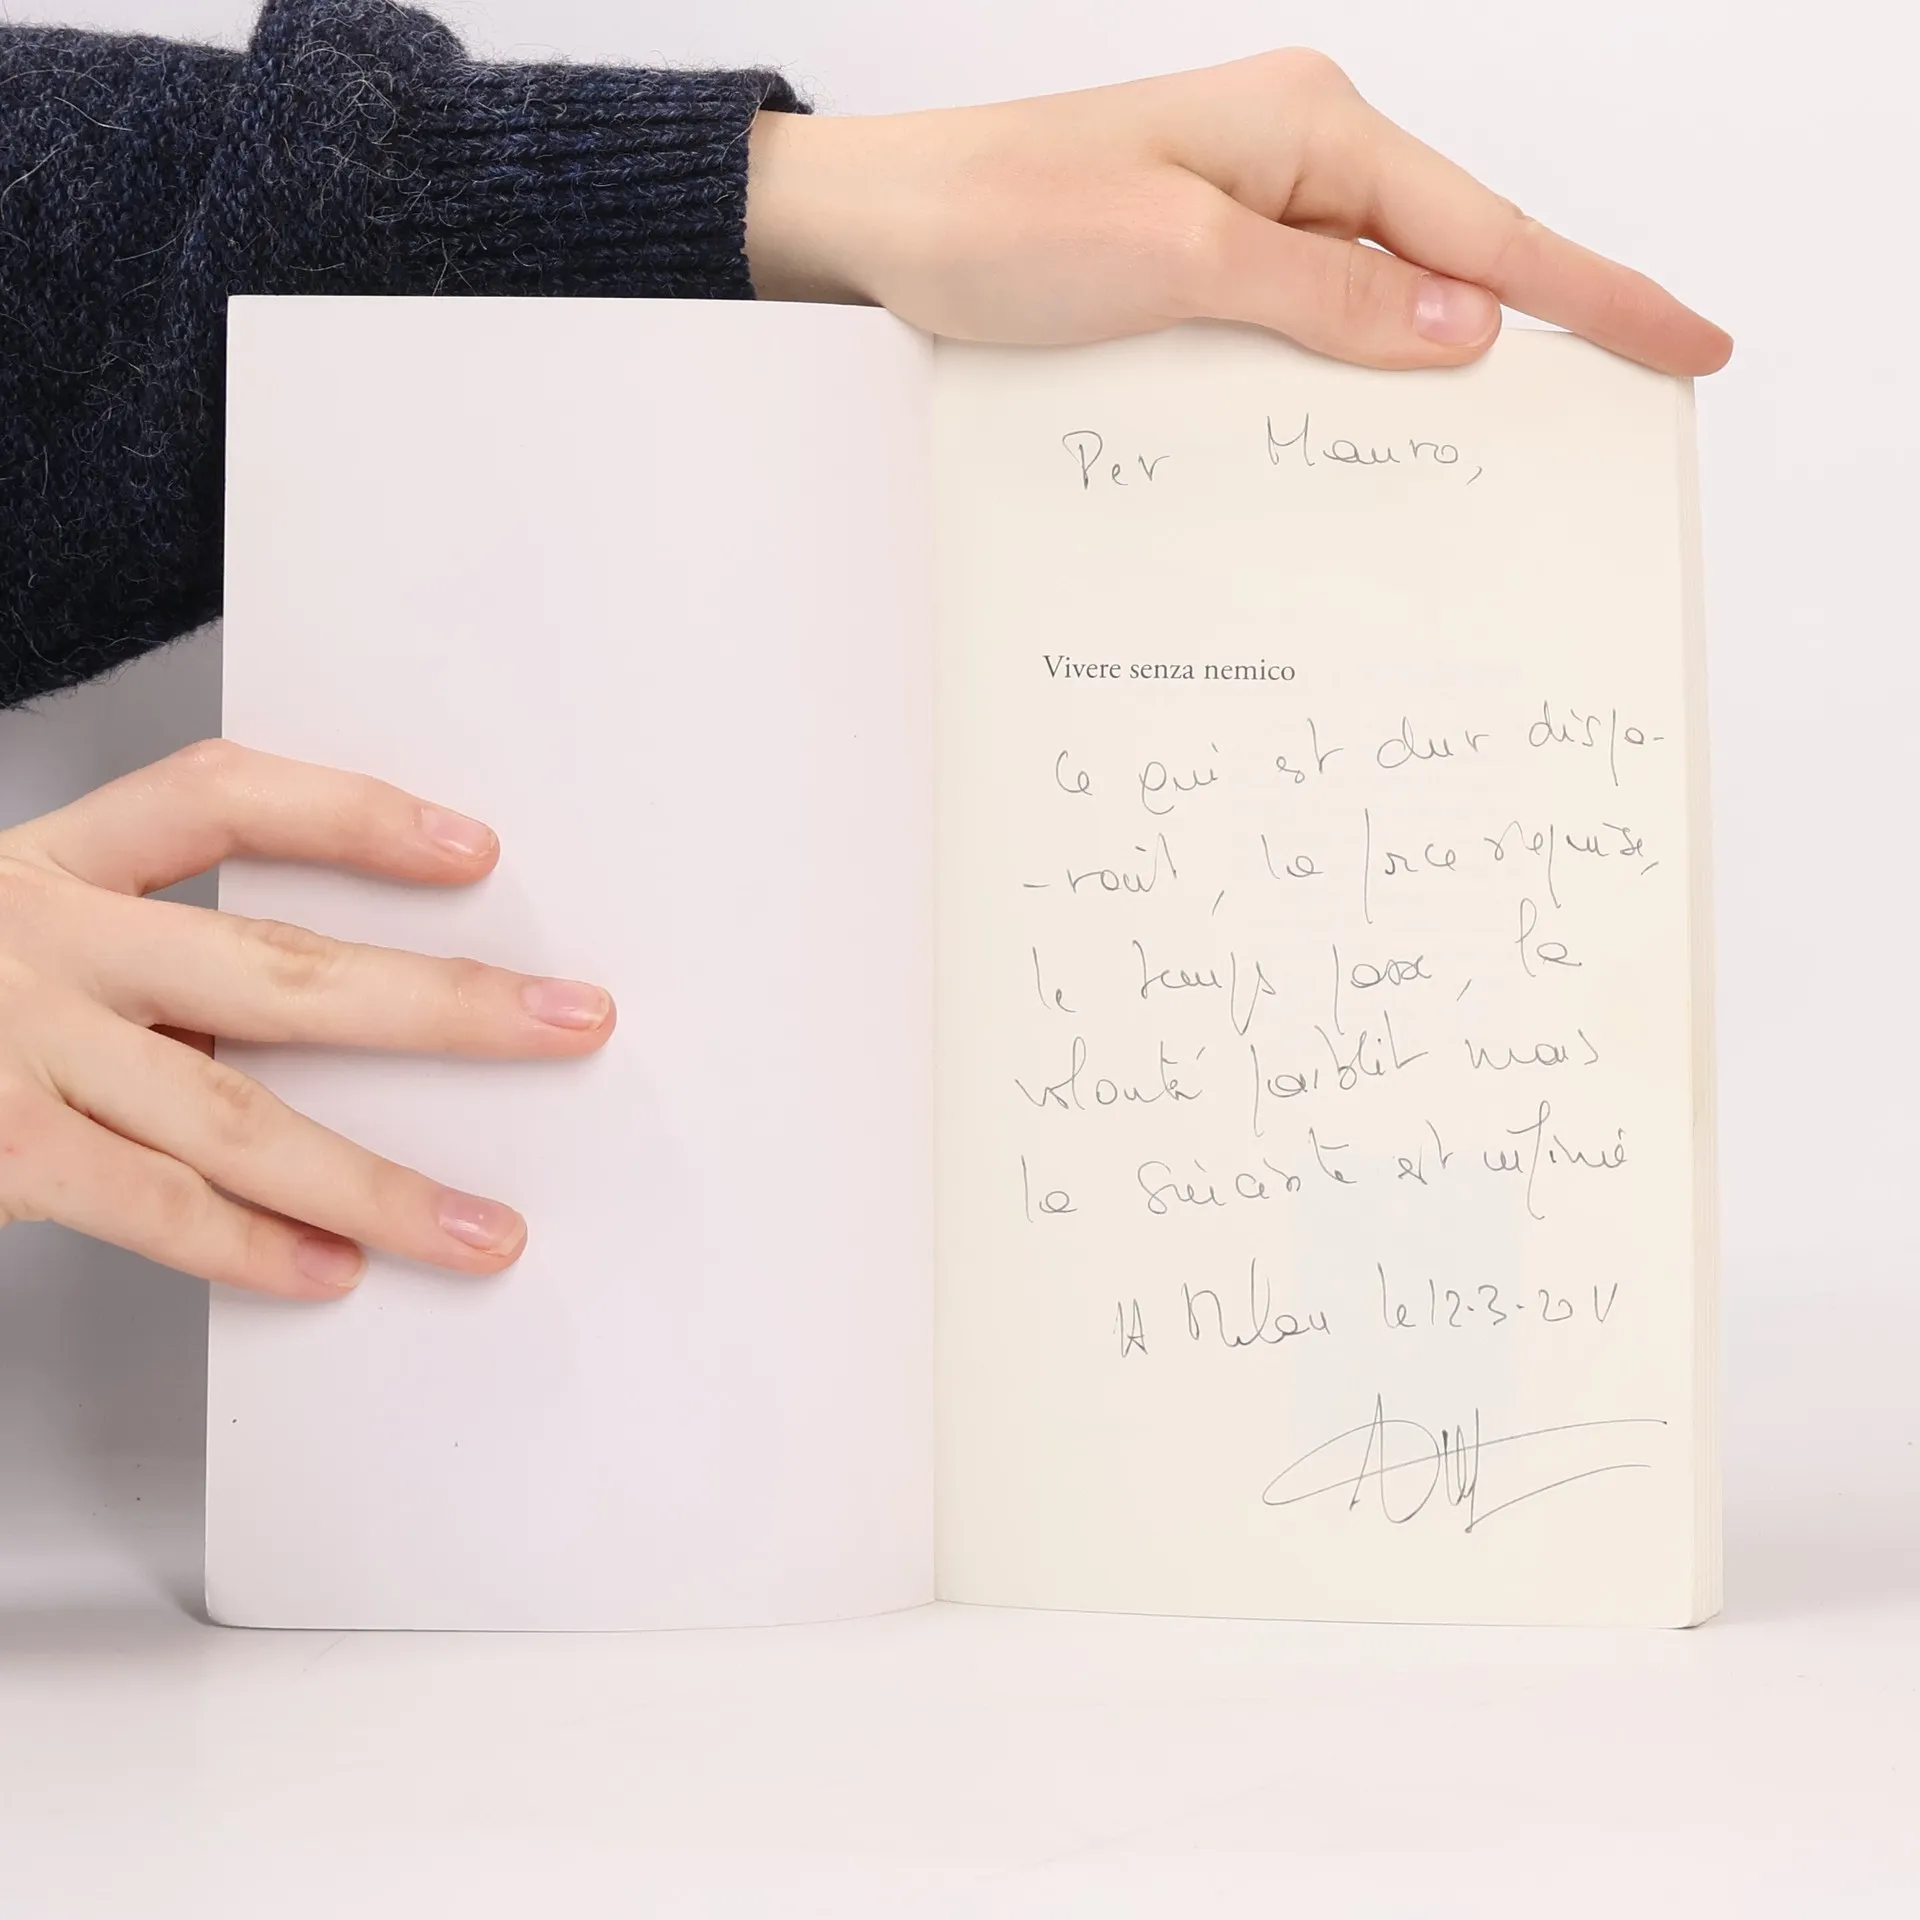 Per Mauro,
Vivere senza nemico
Ce qui est dur dispa-
-rait, la force repuise,
le temps passe, la
volonté faiblit mais
la est infinie
A Milan le 12.3.2011